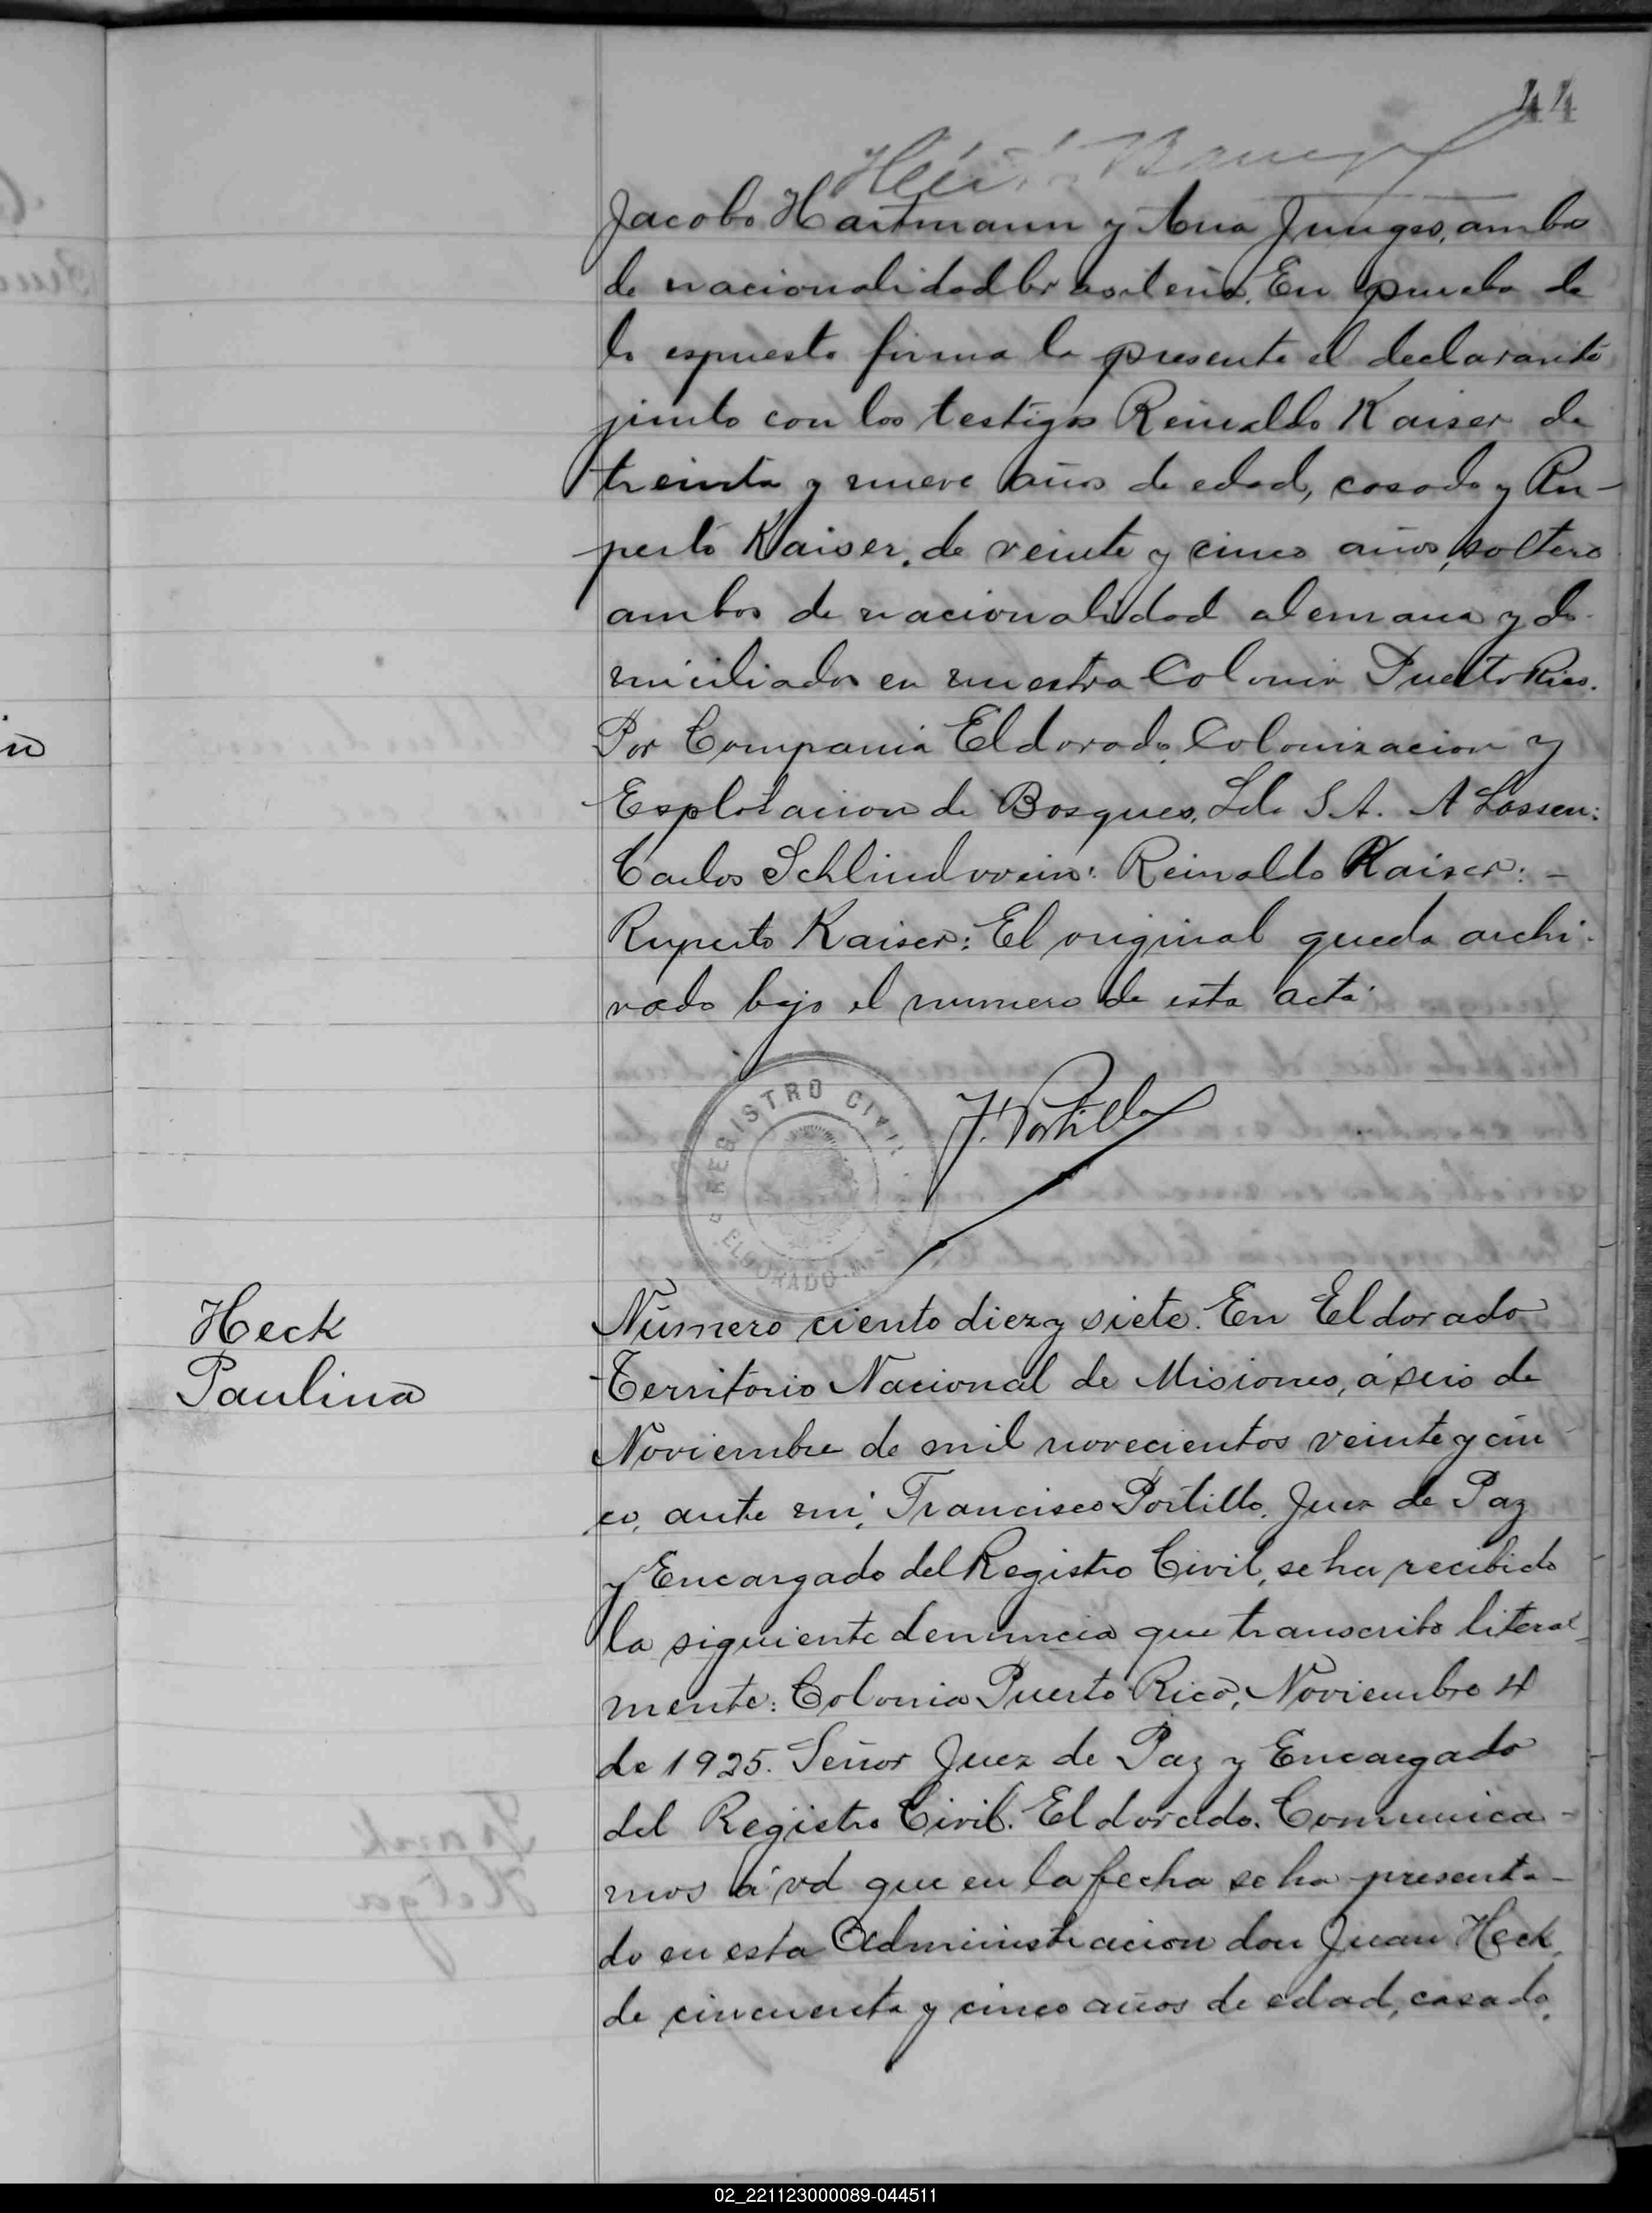 44
Jacobo Hartmann y Ana Junges, ambos
de nacionalidad brasileña. En prueba de
lo espuesto firma la presente el declarante
junto con los testigos Reinaldo Kaiser de
treinta y nueve años de edad, casado y Ru-
perto Kaiser, de veinte y cinco años, soltero
ambos de nacionalidad alemana y do-
miciliados en nuestra Colonia Puerto Rico.
Por Compania Eldorado, Colonizacion y
Esplotacion de Bosques, Lda S A. A Lassen:
Carlos Schlindwein: Reinaldo Kaiser: -
Ruperto Kaiser: El original queda archi-
vado bajo el numero de esta acta.
REGISTRO CIVIL
ELDORADO
F. Portillo
Heck
Paulina
Número ciento diez y siete. En Eldorado
Territorio Nacional de Misiones, á seis de
Noviembre de mil novecientos veinte y cin
co, ante mi, Francisco Portillo, Juez de Paz
y Encargado del Registro Civil, se ha recibido
la siguiente denuncia que transcribo literal-
mente: Colonia Puerto Rico, Noviembre 4
de 1925. Señor Juez de Paz y Encargado
del Registro Civil. Eldorado. Comunica-
mos á vd que en la fecha se ha presenta-
do en esta Administracion don Juan Heck,
de cincuenta y cinco años de edad, casado,
02_221123000089-044511